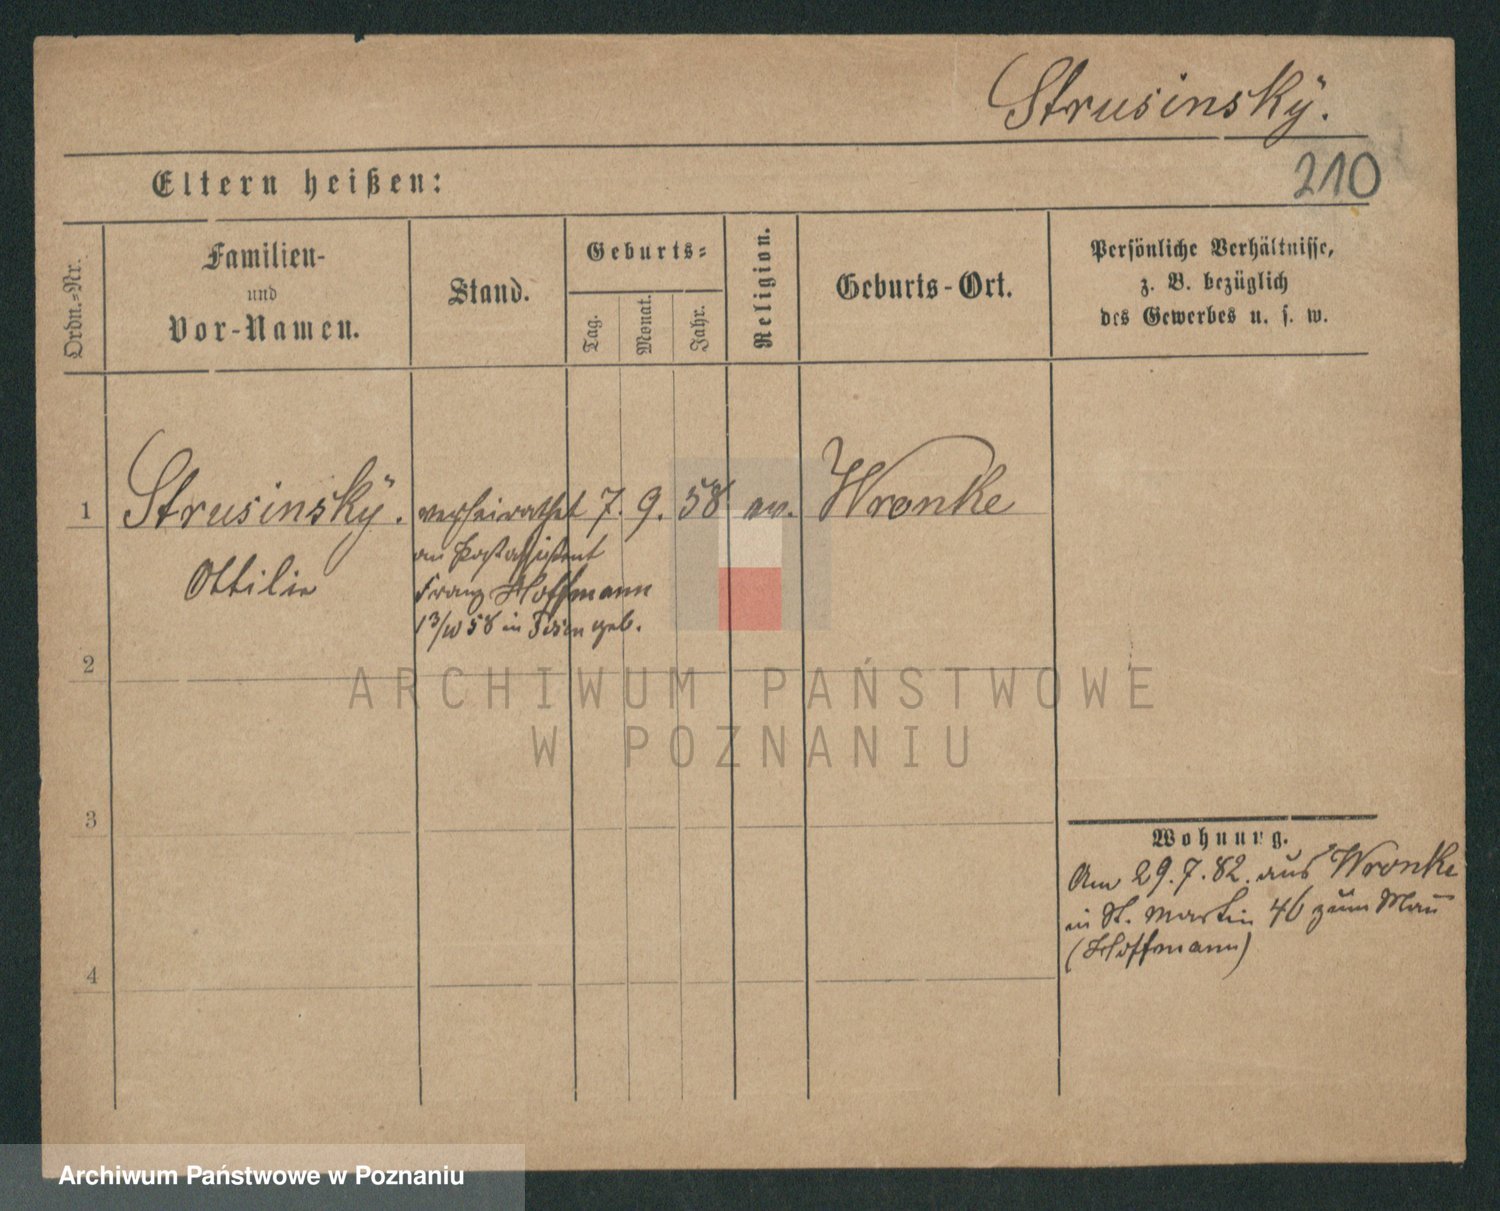 Strusinskÿ.
210
Eltern heißen:
Ordn.-Nr.
Familien-
und
Vor-Namen.
Stand.
Geburts-
Tag.
Monat.
Jahr.
Religion.
Geburts-Ort.
Persönliche Verhältnisse,
z. B. bezüglich
des Gewerbes u. s. w.
1 Strusinskÿ. verheirathet 7. 9. 58 ev. Wronke
Ottilie
an Postassistent
Franz Hoffmann
13/10 58 in geb.
2
3
4
Wohnung.
Am 29.7.82. aus Wronke
in St. Martin 46 zum Mann
(Hoffmann)
ARCHIWUM PAŃSTWOWE
W POZNANIU
Archiwum Państwowe w Poznaniu